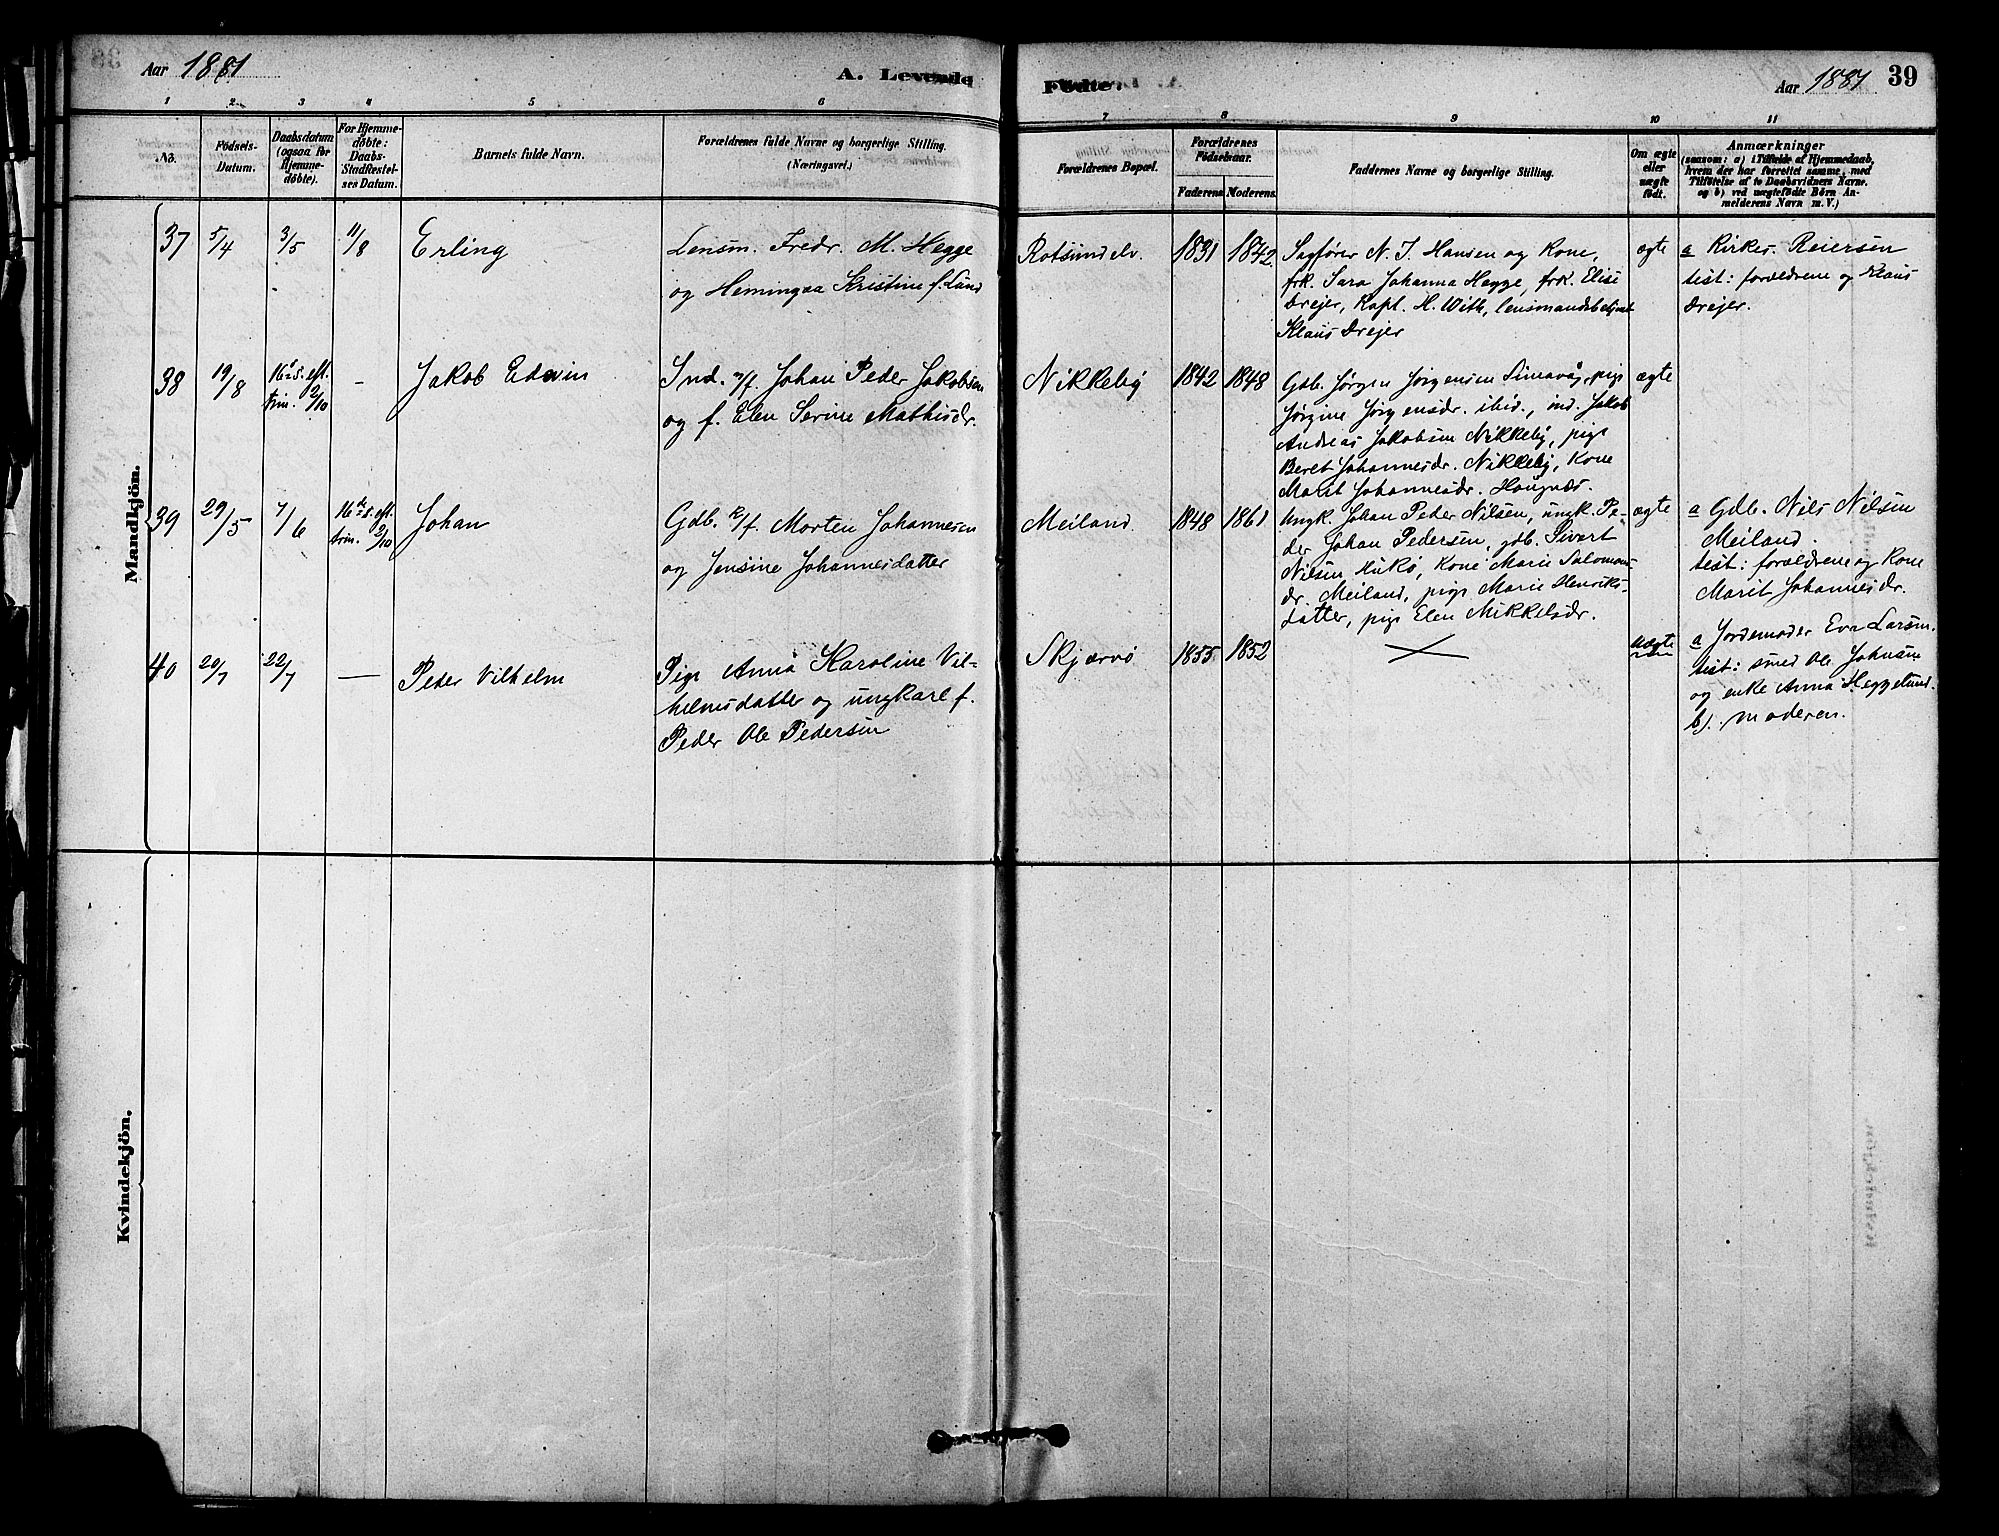 Aar 1881
A. Levende
Fødte.
Aar 1881
39
1 2 3 4 5 6 7 8 9 10 11
No.
Fødsels-
Datum.
Daabsdatum
(ogsaa for
Hjemme-
døbte).
For Hjemme-
døbte:
Daabs-
Stadfæstel-
ses Datum.
Barnets fulde Navn.
Forældrenes fulde Navne og borgerlige Stilling.
(Næringsvei.)
Forældrenes Bopæl.
Forældrenes
Fødselsaar.
Faderens. Moderens.
Faddernes Navne og borgerlige Stilling.
Om ægte
eller
uægte
født.
Anmærkninger
(saasom: a) i Tilfælde af Hjemmedaab,
hvem der har forrettet samme, med
Tilføielse af to Daabsvidners Navne.
og b) ved uægtefødte Børn An-
melderens Navn m. V.)
Mandkjön.
37 5/4 3/5 11/8 Erling
Lensm. Fredr. M. Hegge
og Hemingaa Kristine f. Lund
Rotsundelv. 1831 1842.
Sagfører N. J. Hansen og Kone,
frk. Sara Johanna Hegge, frk. Elise
Drejer, Kapl. H. With, lensmandsbetjent
Klaus Drejer
ægte
a Kirkes. Reiersen
test: forældrene og Klaus
Drejer.
38 19/8 16d s. eft.
trin. 2/10
— Jakob Edvin
Ind. n/f. Johan Peder Jakobsen
og f. Elen Serine Mathisdr.
Nikkeby 1842 1848
Gdb. Jørgen Jørgensen Simavåg, pige
Jørgine Jørgensdr. ibid., ind. Jakob
Andreas Jakobsen Nikkeby, pige
Beret Johannesdr. Nikkeby, Kone
Marit Johannesdr. Haugnæs.
ægte
39 29/5 7/6 16de s. eft.
trin. 2/10
Johan
Gdb. k/f. Morten Johannesen
og Jensine Johannesdatter
Meiland. 1848 1861
Ungk. Johan Peder Nilsen, ungk. Pe-
der Johan Pedersen, gdb. Sivert
Nilsen Hukø, Kone Marie Salomons-
dr. Meiland, pige Marie Henriks-
datter, pige Elen Mikkelsdr.
ægte
a Gdb. Nils Nilsen
Meiland.
test: forældrene og Kone
Marit Johannesdr.
40 20/7 22/7 — Peder Vilhelm
Pige Anna Karoline Vil-
helmsdatter og ungkarl f.
Peder Ole Pedersen
Skjærvø 1855 1852
uægte
a Jordemoder Eva Larsen.
test: smed Ole Johnsen
og enke Anna Heggelund.
b). moderen.
Kvindekjön.